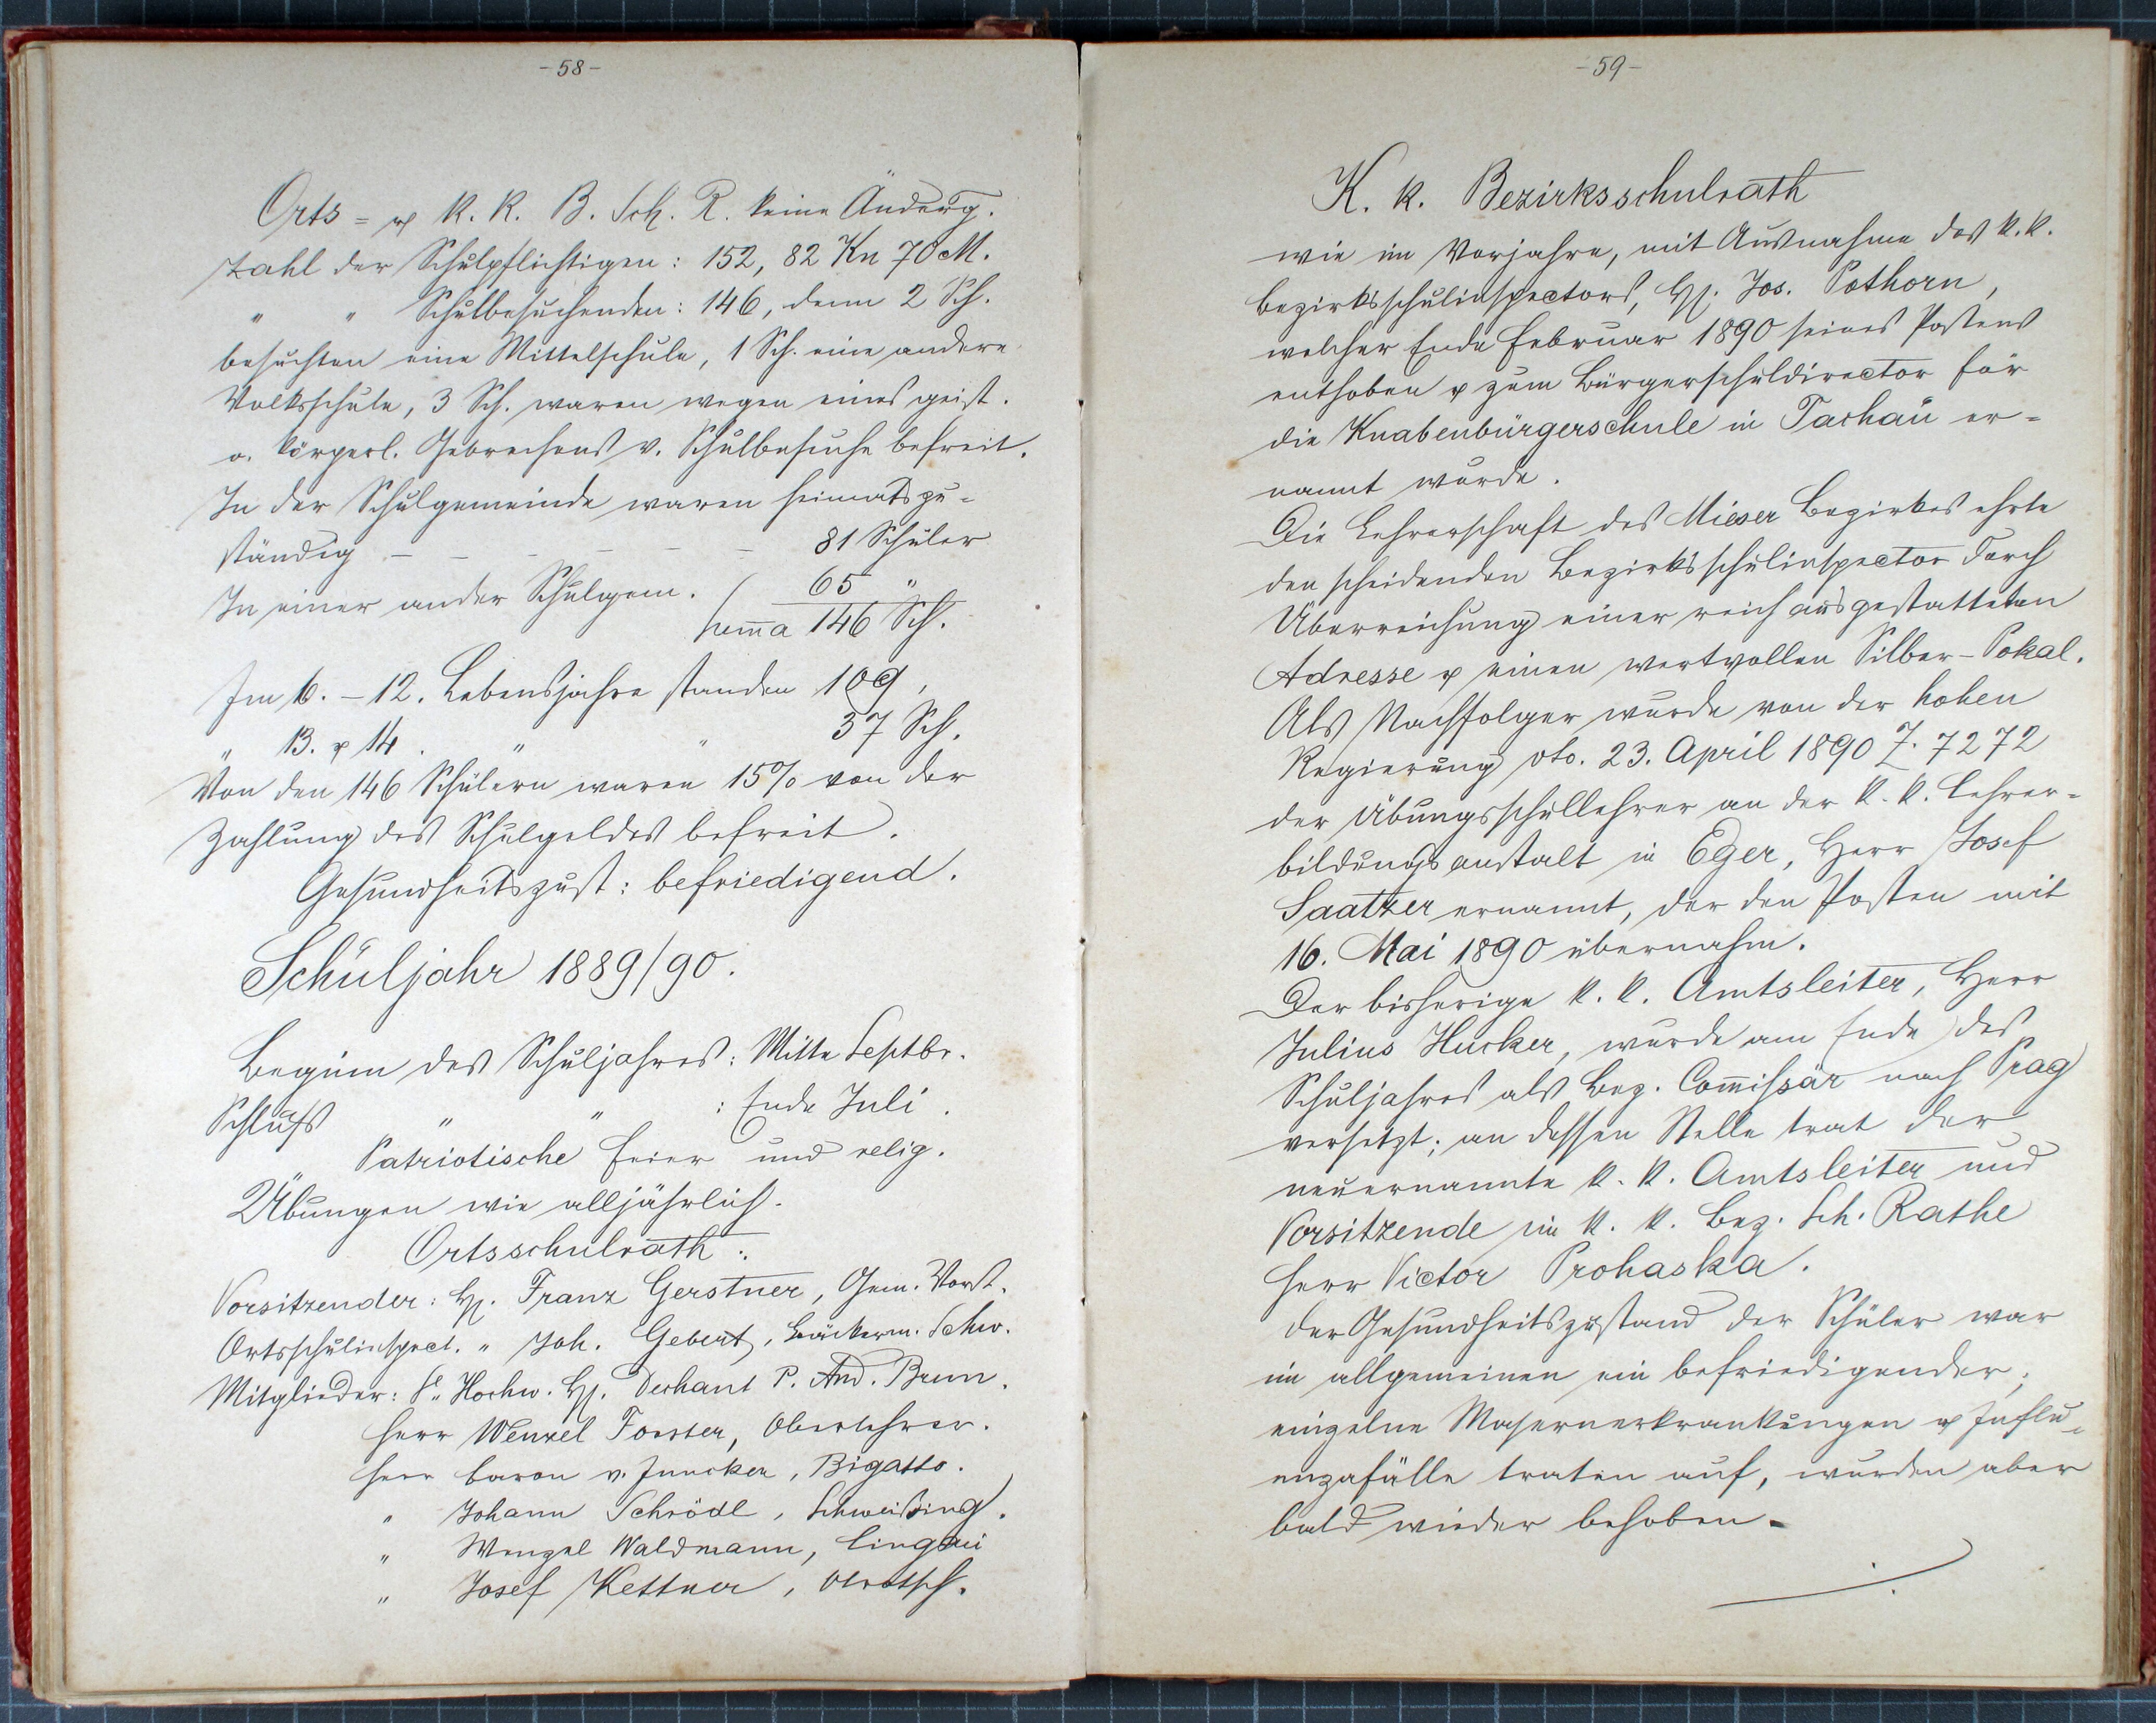 -58-
Orts= u. k. k. B. Sch. R. keine Änderg.
Zahl der Schulpflichtigen: 152, 82 Kn 70 M.
" " Schulbesuchenden: 146, denn 2 Sch.
besuchten eine Mittelschule, 1 Sch. eine andere
Volksschule, 3 Sch. waren wegen eines geist.
o. körperl. Gebrechens v. Schulbesuche befreit.
In der Schulgemeinde waren heimatszu-
ständig – – – – – – 81 Schüler
In einer ander Schulgem. 65 "
Summa 146 Sch.
Im 6. – 12. Lebensjahre standen 109,
" 13. u. 14. " " 37 Sch.
Von den 146 Schülern waren 15% von der
Zahlung des Schulgeldes befreit.
Gesundheitszust: befriedigend.
Schuljahr 1889/90.
Beginn des Schuljahres: Mitte Septbr.
Schluß " " : Ende Juli.
Patriotische Feier und relig.
Übungen wie alljährlich.
Ortsschulrath:
Vorsitzender: H. Franz Gerstner, Gem. Vorst.
Ortsschulinspect. " Joh. Gebert, Bäckerm. Schw.
Mitglieder: Sr. Hochw. H. Dechant P. And. Brun.
Herr Wenzel Forster, Oberlehrer.
Herr Baron v. Juncker, Bigatto.
" Johann Schrödl, Schweißing.
" Wenzel Waldmann, Lingau
" Josef Kettner, Olrotsch.
-59-
K. k. Bezirksschulrath
wie im Vorjahre, mit Ausnahme des k. k.
Bezirksschulinspectors, H. Jos. Pothorn,
welcher Ende Februar 1890 seines Postens
enthoben u. zum Bürgerschuldirector für
die Knabenbürgerschule in Tachau er=
nannt wurde.
Die Lehrerschaft des Mieser Bezirkes ehrte
den scheidenden Bezirksschulinspector durch
Überreichung einer reich ausgestatteten
Adresse u. einen wertvollen Silber-Pokal.
Als Nachfolger wurde von der hohen
Regierung dto. 23. April 1890 Z. 7272
der Übungsschullehrer an der k. k. Lehrer=
bildungsanstalt in Eger, Herr Josef
Saatzer ernannt, der den Posten mit
16. Mai 1890 übernahm.
Der bisherige k. k. Amtsleiter, Herr
Julius Hucker, wurde am Ende des
Schuljahres als Bez. Commissär nach Prag
versetzt; an dessen Stelle trat der
neuernannte k. k. Amtsleiter und
Vorsitzende im k. k. Bez. Sch. Rathe
Herr Victor Prohaska.
Der Gesundheitszustand der Schüler war
im allgemeinen ein befriedigender;
einzelne Masernerkrankungen u. Influ-
enzafälle traten auf, wurden aber
bald wieder behoben.